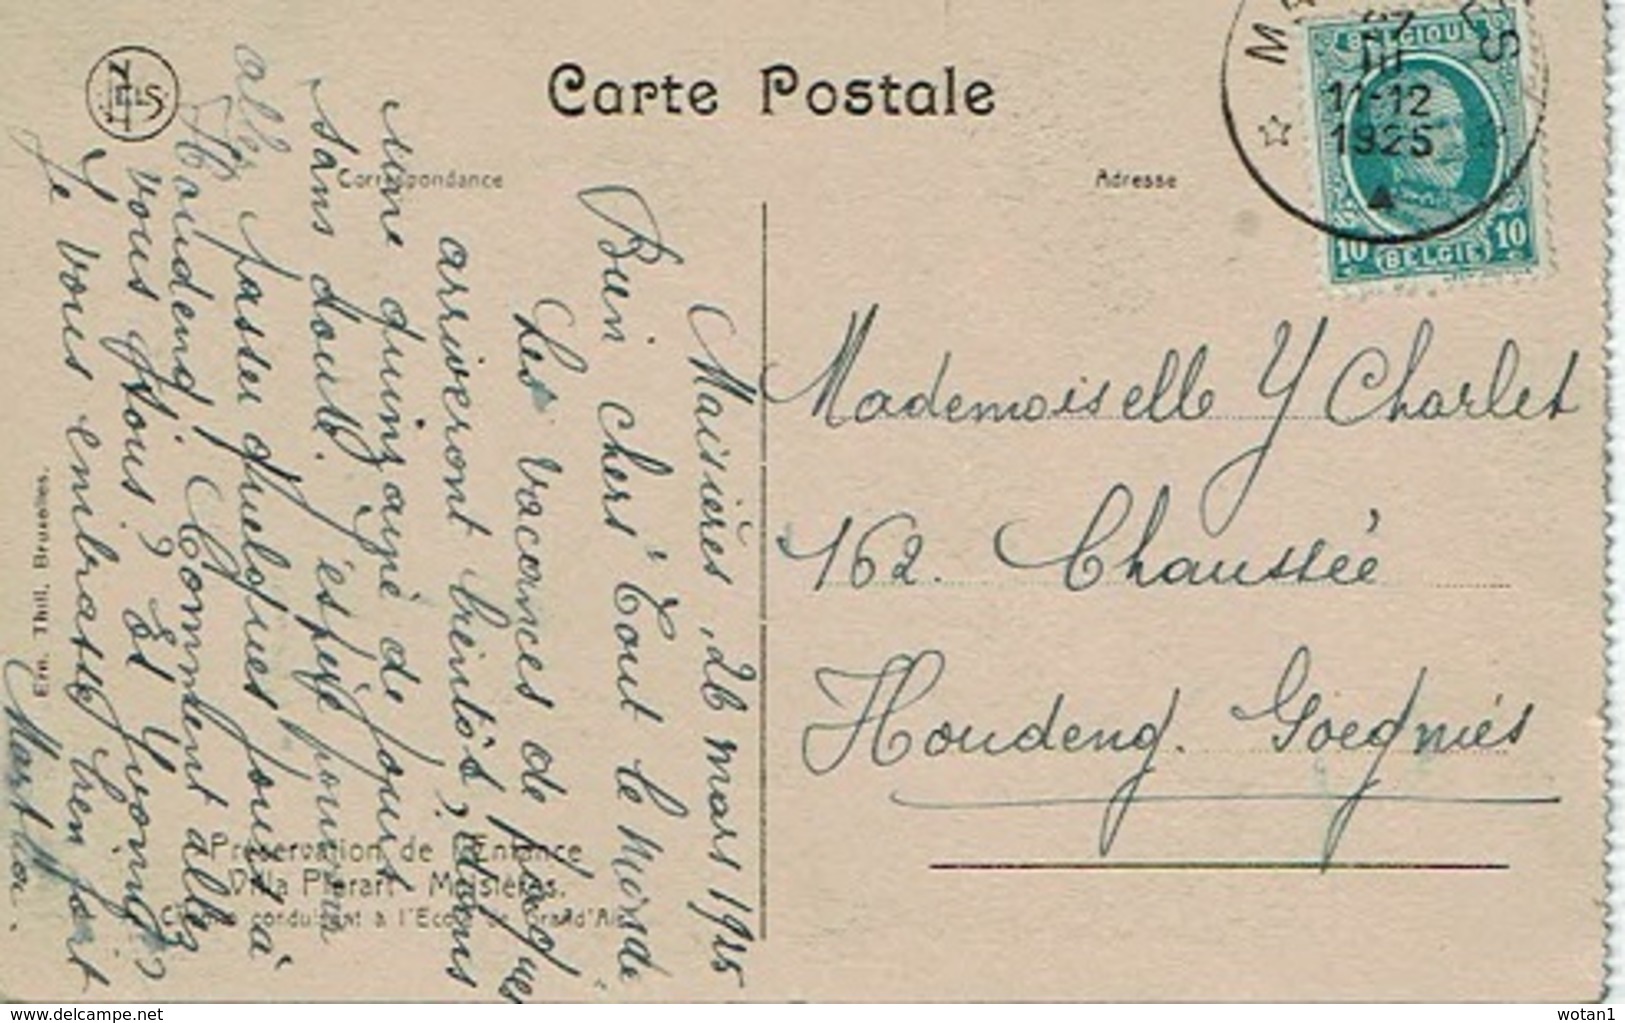 Carte Postale
Correspondance
Adresse
NELS
BELGIQUE
11-12
1925
10 10
BELGIE
Mademoiselle Y Charlet
162. Chaussée
Houdeng. Goegnies
Maisières, 26 mars 1925
Bien chers Tout le Monde
Les vacances de Pâques
arriveront bientôt, dans
une quinzaine de jours
sans doute. J'espère pouvoir
aller passer quelques jours à
Houdeng. Comment allez
vous tous? Et Yvonne?
Je vous embrasse bien fort
Martha.
Préservation de l'Enfance
Villa Pierart Maisières.
conduisant à l'Ecole de Grand'Air
Ern. Thill, Bruxelles.
delcampe.net
wotan1